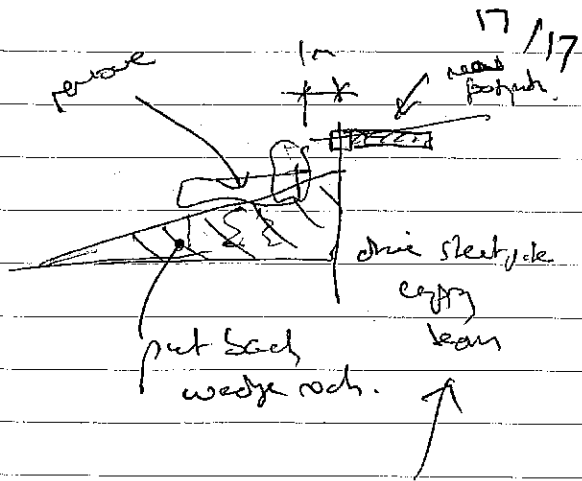 17/17
1m
remove
footpath.
drive sheetpile
capping
beam
put back
wedge rock.